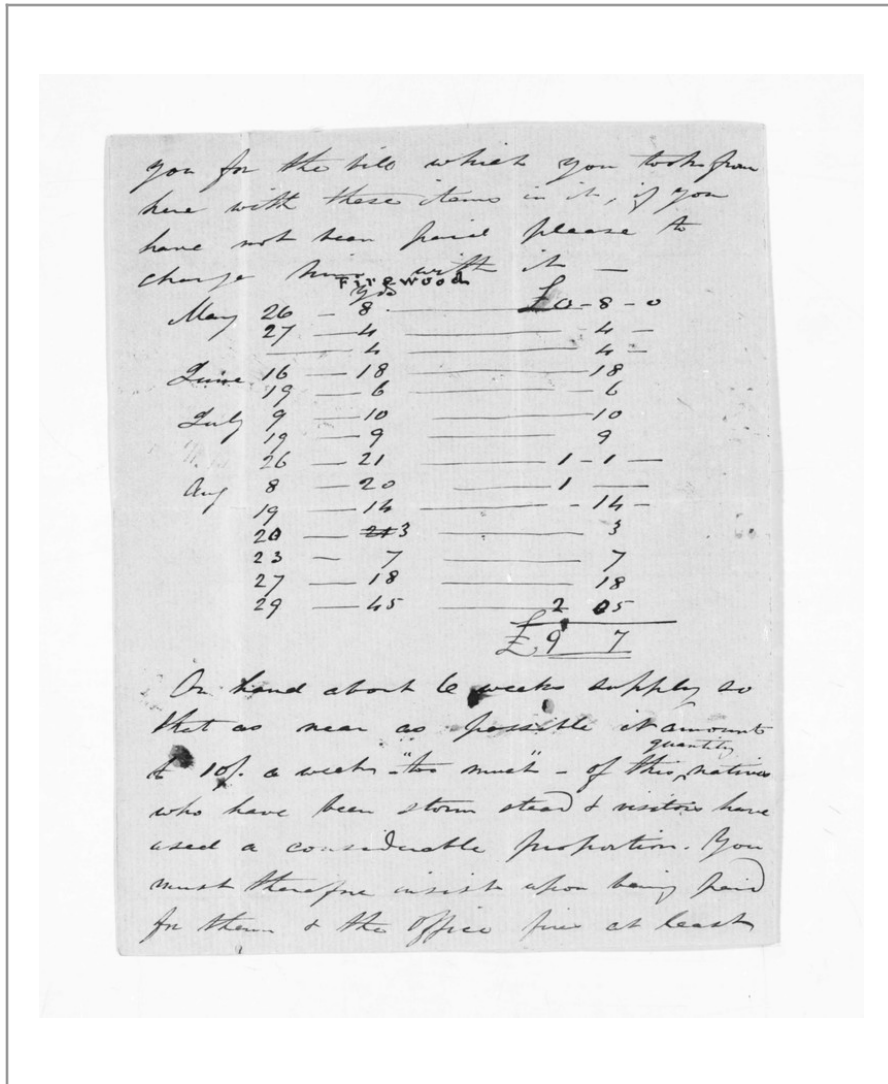 you for the bill which you took from
here with these items in it, if you
have not been paid please to
charge him with it —
Firewood
yds
May 26 — 8 — £0-8-0
27 — 4 — 4 —
— 4 — 4 —
June 16 — 18 — 18
19 — 6 — 6
July 9 — 10 — 10
19 — 9 — 9
26 — 21 — 1-1 —
Aug 8 — 20 — 1 —
19 — 14 — 14 —
20 — 3 — 3
23 — 7 — 7
27 — 18 — 18
29 — 45 — 2 05
£9 7
On hand about 6 weeks supply so
that as near as possible it amounts
quantity
to 10/. a week "too much" - of this natives
who have been storm stead & visitors have
used a considerable proportion. You
must therefore insist upon being paid
for them & the Office fire at least